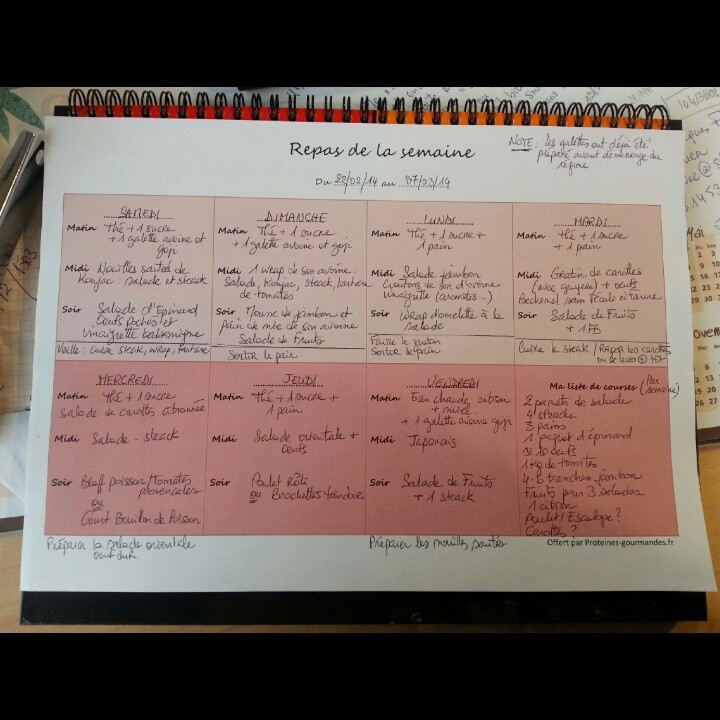 Repas de la semaine
NOTE : les galettes ont déjà été
préparé avant démarrage du
régime
Du 22/02/14 au 07/03/14
SAMEDI
Matin Thé + 1 sucre
+ 1 galette avoine et
goji
Midi Nouilles sautés de
Konjac : salade et steack
Soir Salade d'Epinard
Oeufs Pochés et
vinaigrette balsamique
Veille : Cuire steak, wrap, tartare
DIMANCHE
Matin Thé + 1 sucre
+ 1 galette avoine et goji
Midi 1 wrap de son avoine :
Salade, Konjac, steack, tartare
de tomates
Soir Mousse de jambon et
Pain de mie de son avoine
Salade de Fruits
Sortir le pain
LUNDI
Matin Thé + 1 sucre +
1 pain
Midi Salade jambon
Croutons de son d'avoine
Vinaigrette (aromates...)
Soir Wrap d'omelette à la
salade
Faire le gratin
Sortir le pain
MARDI
Matin Thé + 1 sucre
+ 1 pain
Midi Gratin de carottes
(avec gruyère) + oeufs
Bechamel sans fécule ni farine
Soir Salade de Fruits
+ 1
Cuire le steak / Raper les carottes
ou se lever + tôt
MERCREDI
Matin Thé + 1 sucre
Salade de carottes citronnée
Midi Salade - steack
Soir poisson / Tomates
provençales
ou
Court Bouillon de Poisson
Préparer la salade orientale
oeuf dur
JEUDI
Matin Thé + 1 sucre +
1 pain
Midi Salade orientale +
oeufs
Soir Poulet Rôti
ou Brochettes Yandoori
VENDREDI
Matin Eau chaude, citron
+ miel
+ 1 galette avoine goji
Midi Japonais
Soir Salade de Fruits
+ 1 steack
Préparer les nouilles sautés
Ma liste de courses (Par
semaine)
2 paquets de salade
4 steacks
3 pains
1 paquet d'épinard
10 oeufs
1 Kg de tomates
4-6 tranches jambon
Fruits pour 3 salades
1 citron
poulet / Escalope ?
Carottes ?
Offert par Proteines-gourmandes.fr